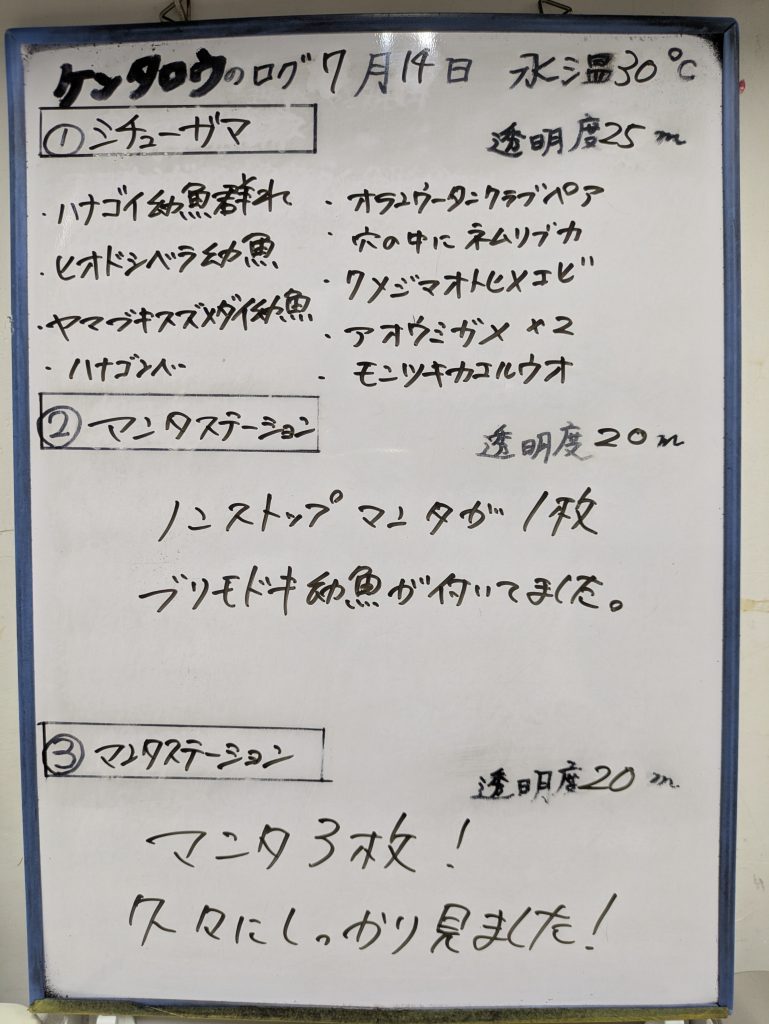 ケンタロウのログ 7月14日 水温30℃
①ミチューガマ 透明度25m
・ハナゴイ幼魚群れ
・ヒオドシベラ幼魚
・ヤマブキスズメダイ幼魚
・ハナゴンベ
・オランウータンクラブペア
・穴の中にネムリブカ
・クメジマオトヒメエビ
・アオウミガメ×2
・モンツキカエルウオ
②マンタステーション 透明度20m
ノンストップマンタが1枚
ブリモドキ幼魚が付いてました。
③マンタステーション 透明度20m
マンタ3枚!
久々にしっかり見ました!